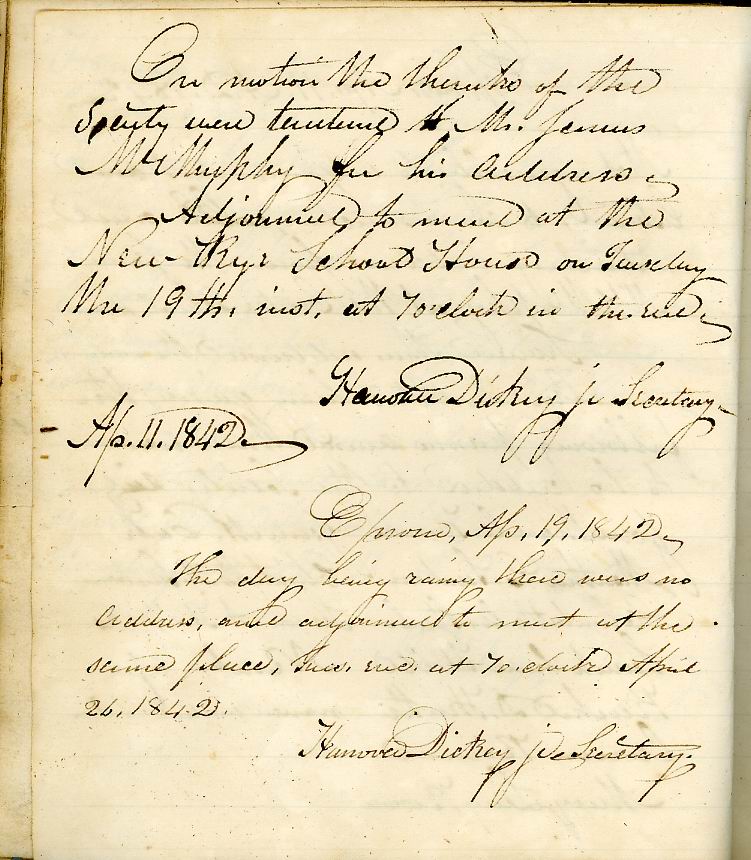 On motion the thanks of the
Society were tendered to Mr. James
McMurphy for his address.
Adjourned to meet at the
New-Rye School House on Tuesday
the 19th. inst. at 7 o'clock in the eve.
Hanover Dickey jr Secretary
Ap. 11. 1842.
Epsom, Ap. 19. 1842.
The day being rainy there was no
address, and adjourned to meet at the
same place, Tues. eve. at 7 o.clock April
26. 1842.
Hanover Dickey jr. Secretary.